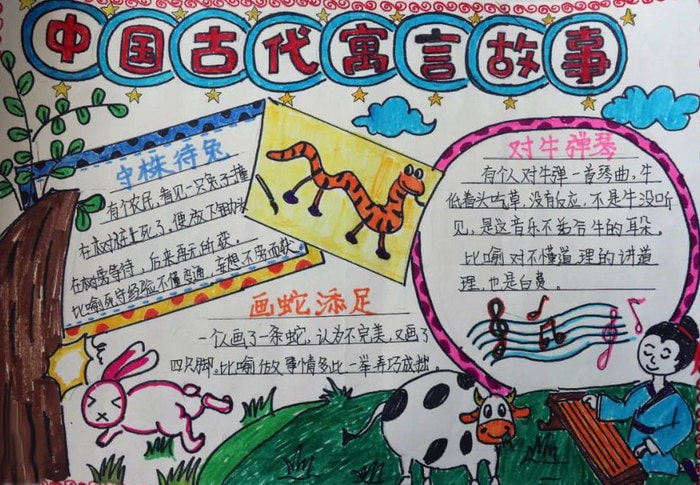 中国古代寓言故事
守株待兔
有个农民,看见一只兔子撞
在树桩上死了,便放下锄头
在树旁等待,后来再无所获。
比喻死守经验,不懂变通,妄想不劳而获
画蛇添足
一个人画了一条蛇,认为不完美,又画了
四只脚。比喻做事情多此一举弄巧成拙。
对牛弹琴
有个人对牛弹一首琴曲,牛
低着头吃草,没有反应,不是牛没听
见,是这音乐不适合牛的耳朵。
比喻对不懂道理的讲道
理,也是白费。